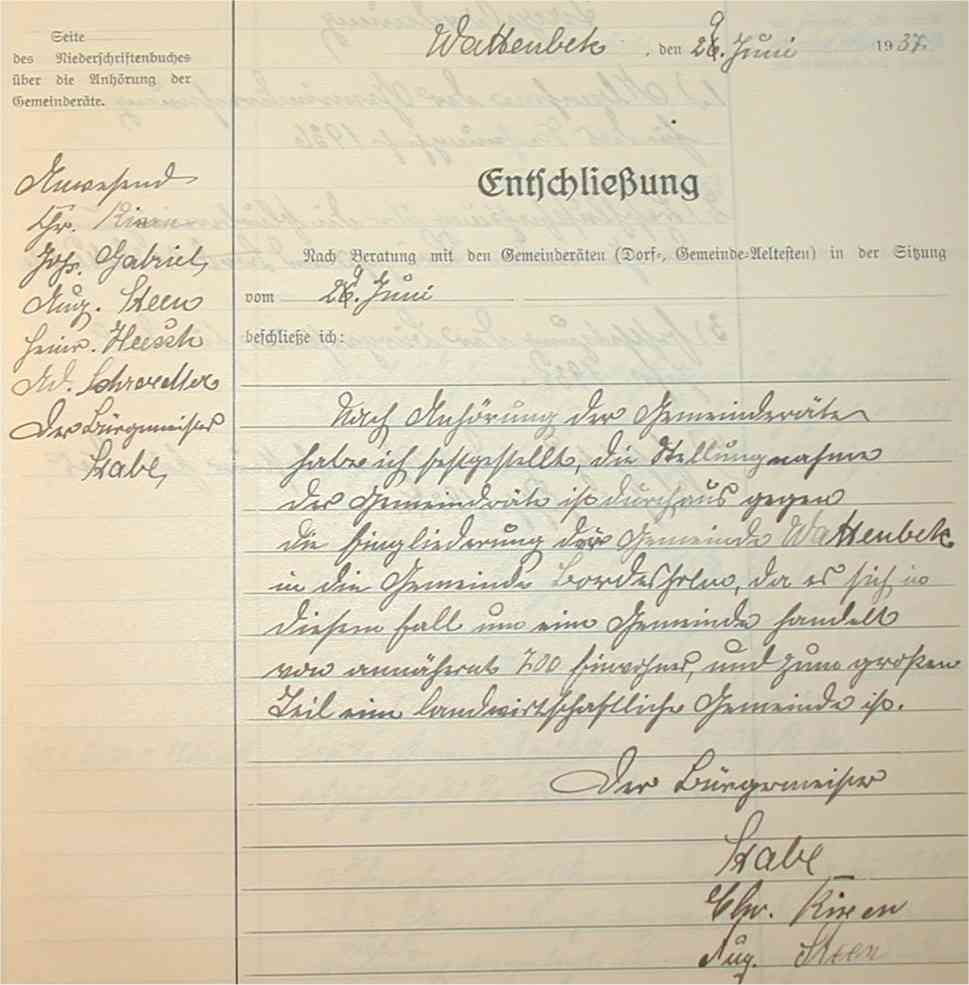 Seite
des Niederschriftenbuches
über die Anhörung der
Gemeinderäte.
Wattenbek, den 29. Juni 1937.
Anwesend
Chr.
Joh. Gabriel,
Aug. Steen
Heinr. Heesch
Ad. Schroedter
Der Bürgmeister
Stabe,
Entschließung
Nach Beratung mit den Gemeinderäten (Dorf-, Gemeinde-Aeltesten) in der Sitzung
vom 29. Juni
beschließe ich:
Nach Anhörung der Gemeinderäte
habe ich festgestellt, die Stellungnahme
der Gemeindräte ist durchaus gegen
die Eingliederung der Gemeinde Wattenbek
in die Gemeinde Bordesholm, da es sich in
diesem Fall um eine Gemeinde handelt
von annähernt 700 Einwohner, und zum großen
Teil eine landwirtschaftliche Gemeinde ist.
Der Bürgermeister
Stabe
Chr.
Aug. Steen